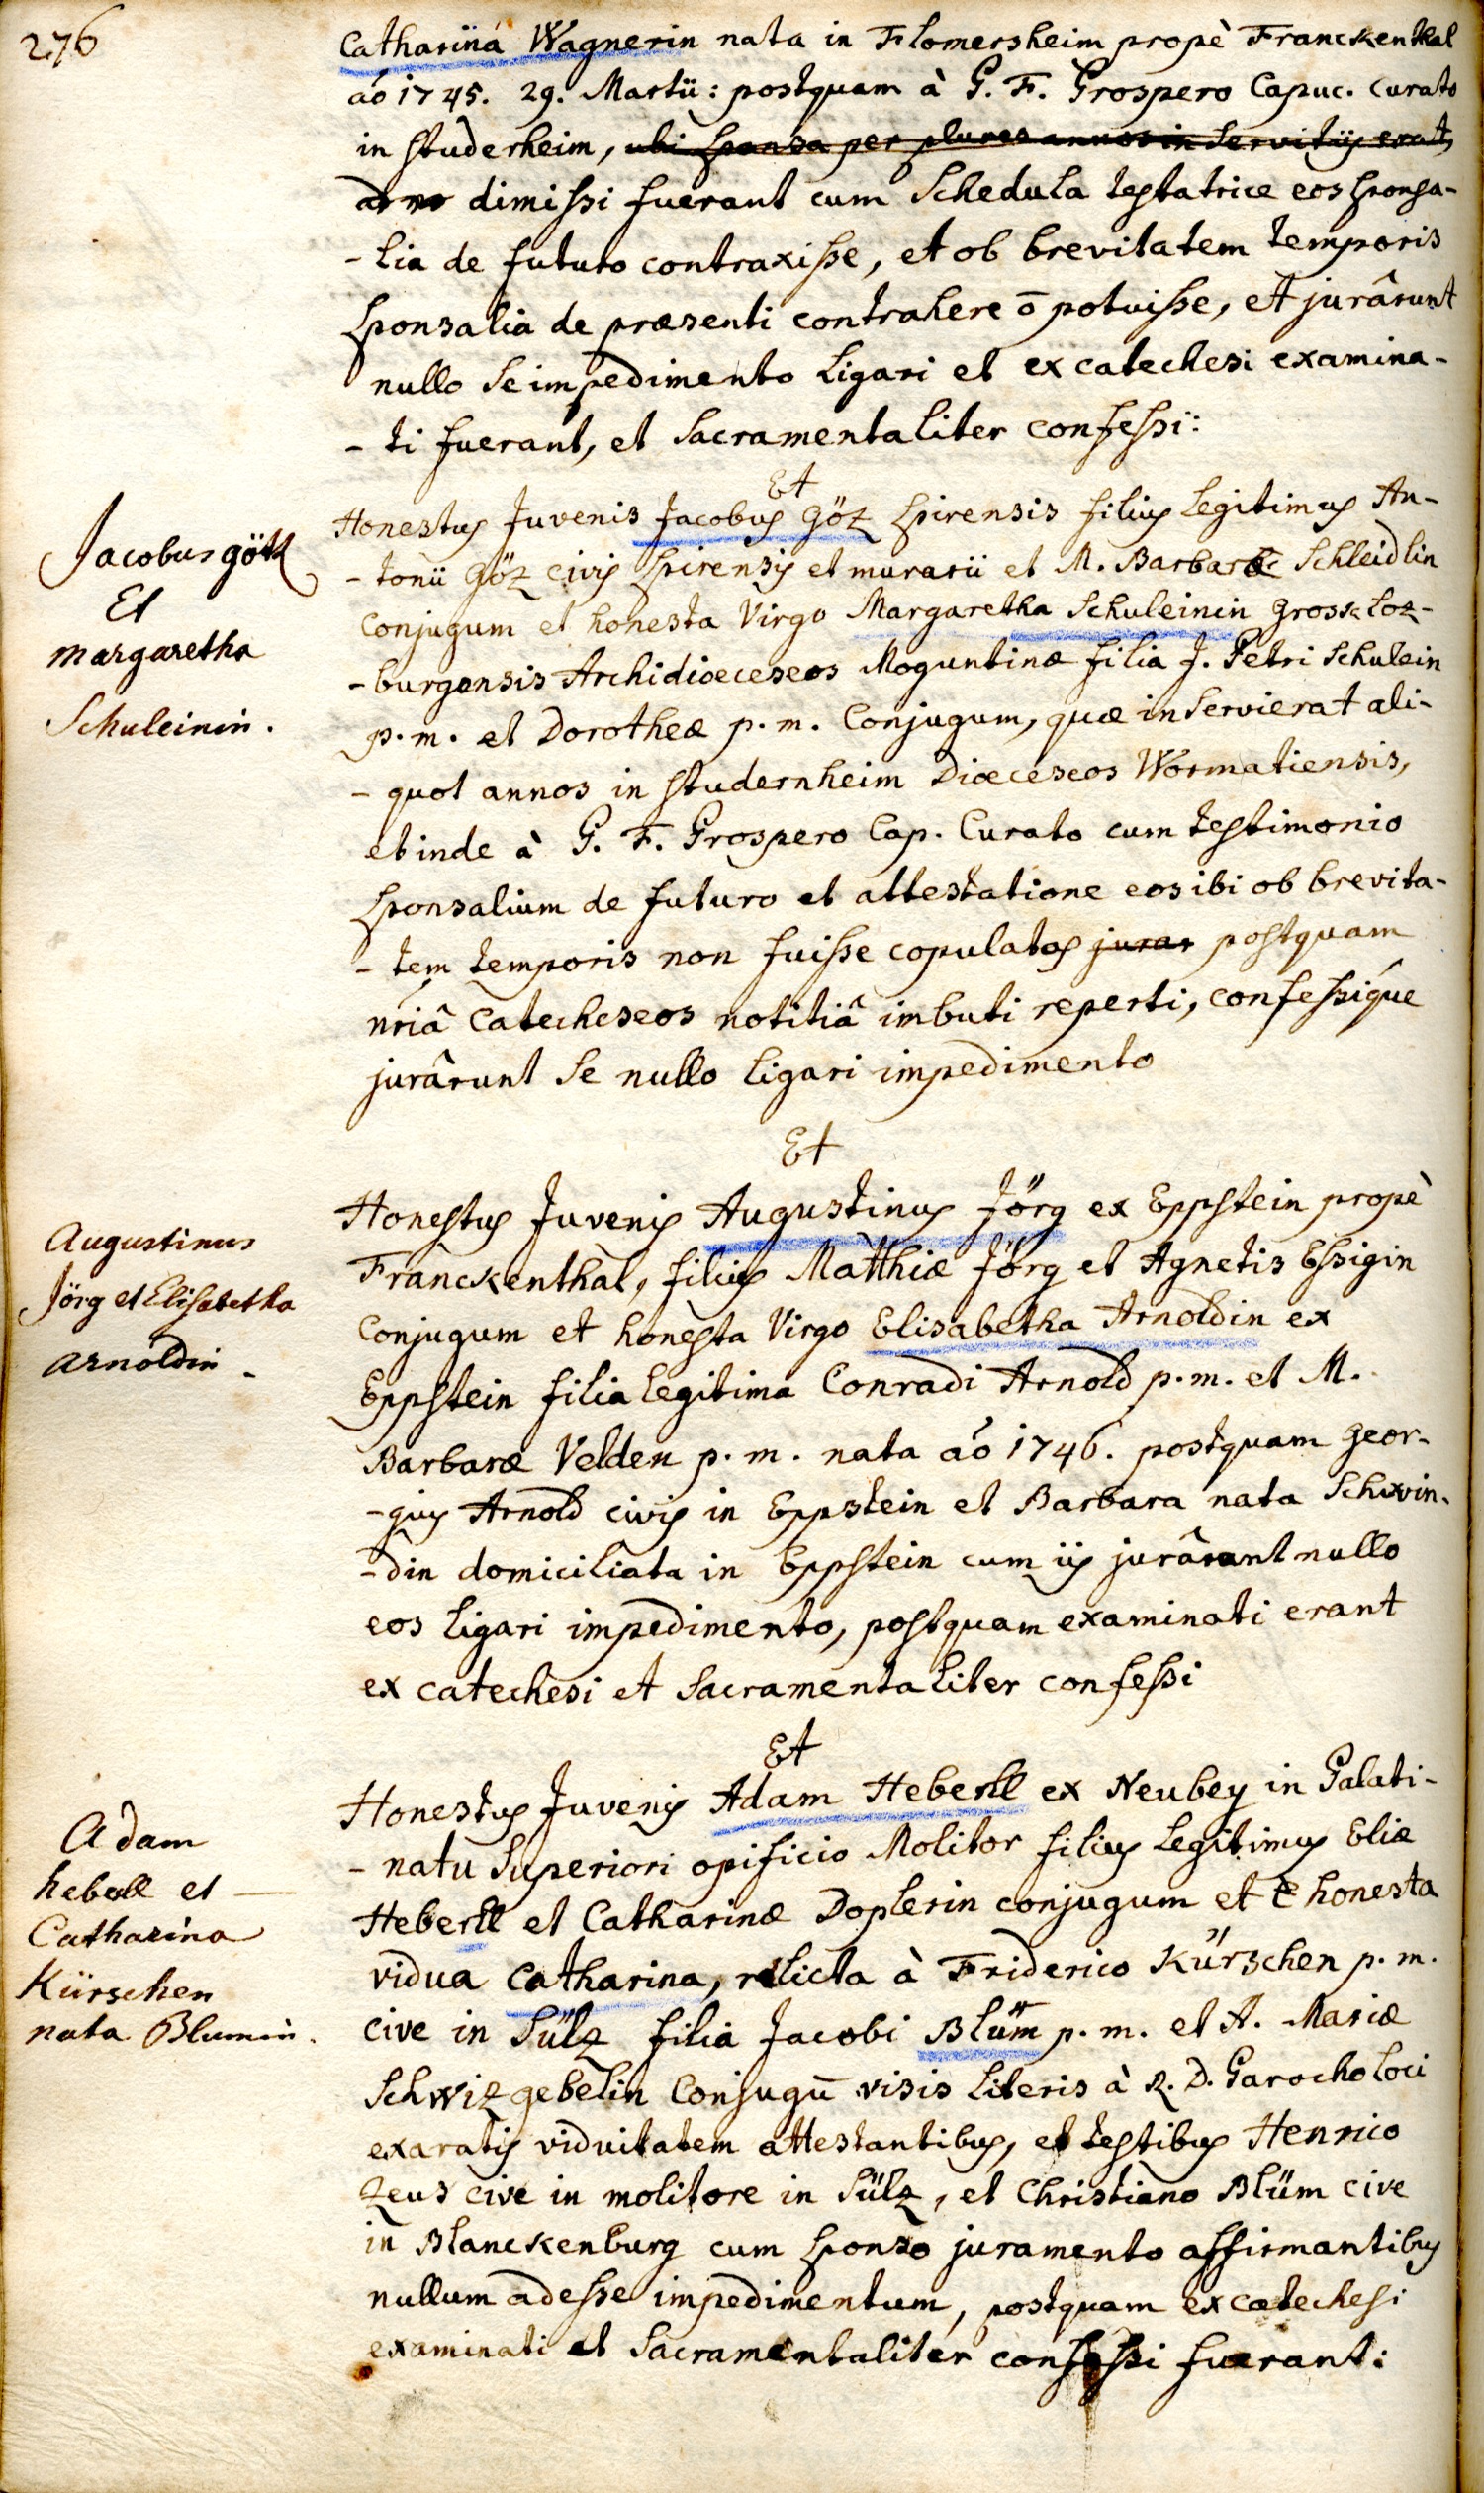 276
Catharina Wagnerin nata in Flomersheim propè Franckenthal
aó 1745. 29. Martii: postquam à P. F. Prospero Capuc. Curato
in Studerheim, ubi Sponsa per plures annos in Servitijs erat,
dimissi fuerant cum Schedula testatrice eos Sponsa-
-lia de fututo contraxisse, et ob brevitatem temporis
Sponsalia de præsenti contrahere ō potuisse, et jurârunt
nullo Se impedimento Ligari et ex catechesi examina-
-ti fuerant, et Sacramentaliter confessi:
Et
Jacobus götz
Et
margaretha
Schuleinin.
Honestus Juvenis Jacobus Göz Spirensis filius Legitimus An-
-tonii Göz civis Spirensis et murarii et M. Barbaræ Schleidlin
Conjugum et honesta Virgo Margaretha Schuleinin
-burgensis Archidiœceseos Moguntinæ filia J. Petri Schulein
p. m. et Dorotheæ p. m. Conjugum, quæ inservierat ali-
-quot annos in Studernheim Diœceseos Wormatiensis,
et inde à P. F. Prospero Cap. Curato cum testimonio
Sponsalium de futuro et attestatione eos ibi ob brevita-
-tem temporis non fuisse copulatos jurar postquam
nriâ Catecheseos notitiâ imbuti reperti, confessíque
jurârunt Se nullo Ligari impedimento
Et
Augustinus
Jörg et Elisabetha
Arnoldin.
Honestus Juvenis Augustinus Jörg ex Eppstein propè
Franckenthal, filius Matthiæ Jörg et Agnetis Essigin
Conjugum et honesta Virgo Elisabetha Arnoldin ex
Eppstein filia Legitima Conradi Arnold p. m. et M.
Barbaræ Velden p. m. nata aó 1746. postquam Geor-
-gius Arnold civis in Eppstein et Barbara nata Schwin-
-din domiciliata in Eppstein cum iis jurârant nullo
eos Ligari impedimento, postquam examinati erant
ex catechesi et Sacramentaliter confessi
Et
Adam
heberll et
Catharina
Kürschen
nata Blumin.
Honestus Juvenis Adam Heberll ex Neubey in Palati-
-natu Superiori opificio Molitor filius Legitimus Eliæ
Heberll et Catharinæ Doplerin conjugum et honesta
vidua Catharina, relicta à Friderico Kürschen p. m.
cive in Sülz filia Jacobi Blüm p. m. et A. Mariæ
Schwizgebelin Conjugū visis Literis à R. D. Parocho Loci
exaratis viduitatem attestantibus, et testibus Henrico
Zeus cive in molitore in Sülz, et Christiano Blüm cive
in Blanckenburg cum Sponso juramento affirmantibus
nullum adesse impedimentum, postquam ex catechesi
examinati et Sacramentaliter confessi fuerant: